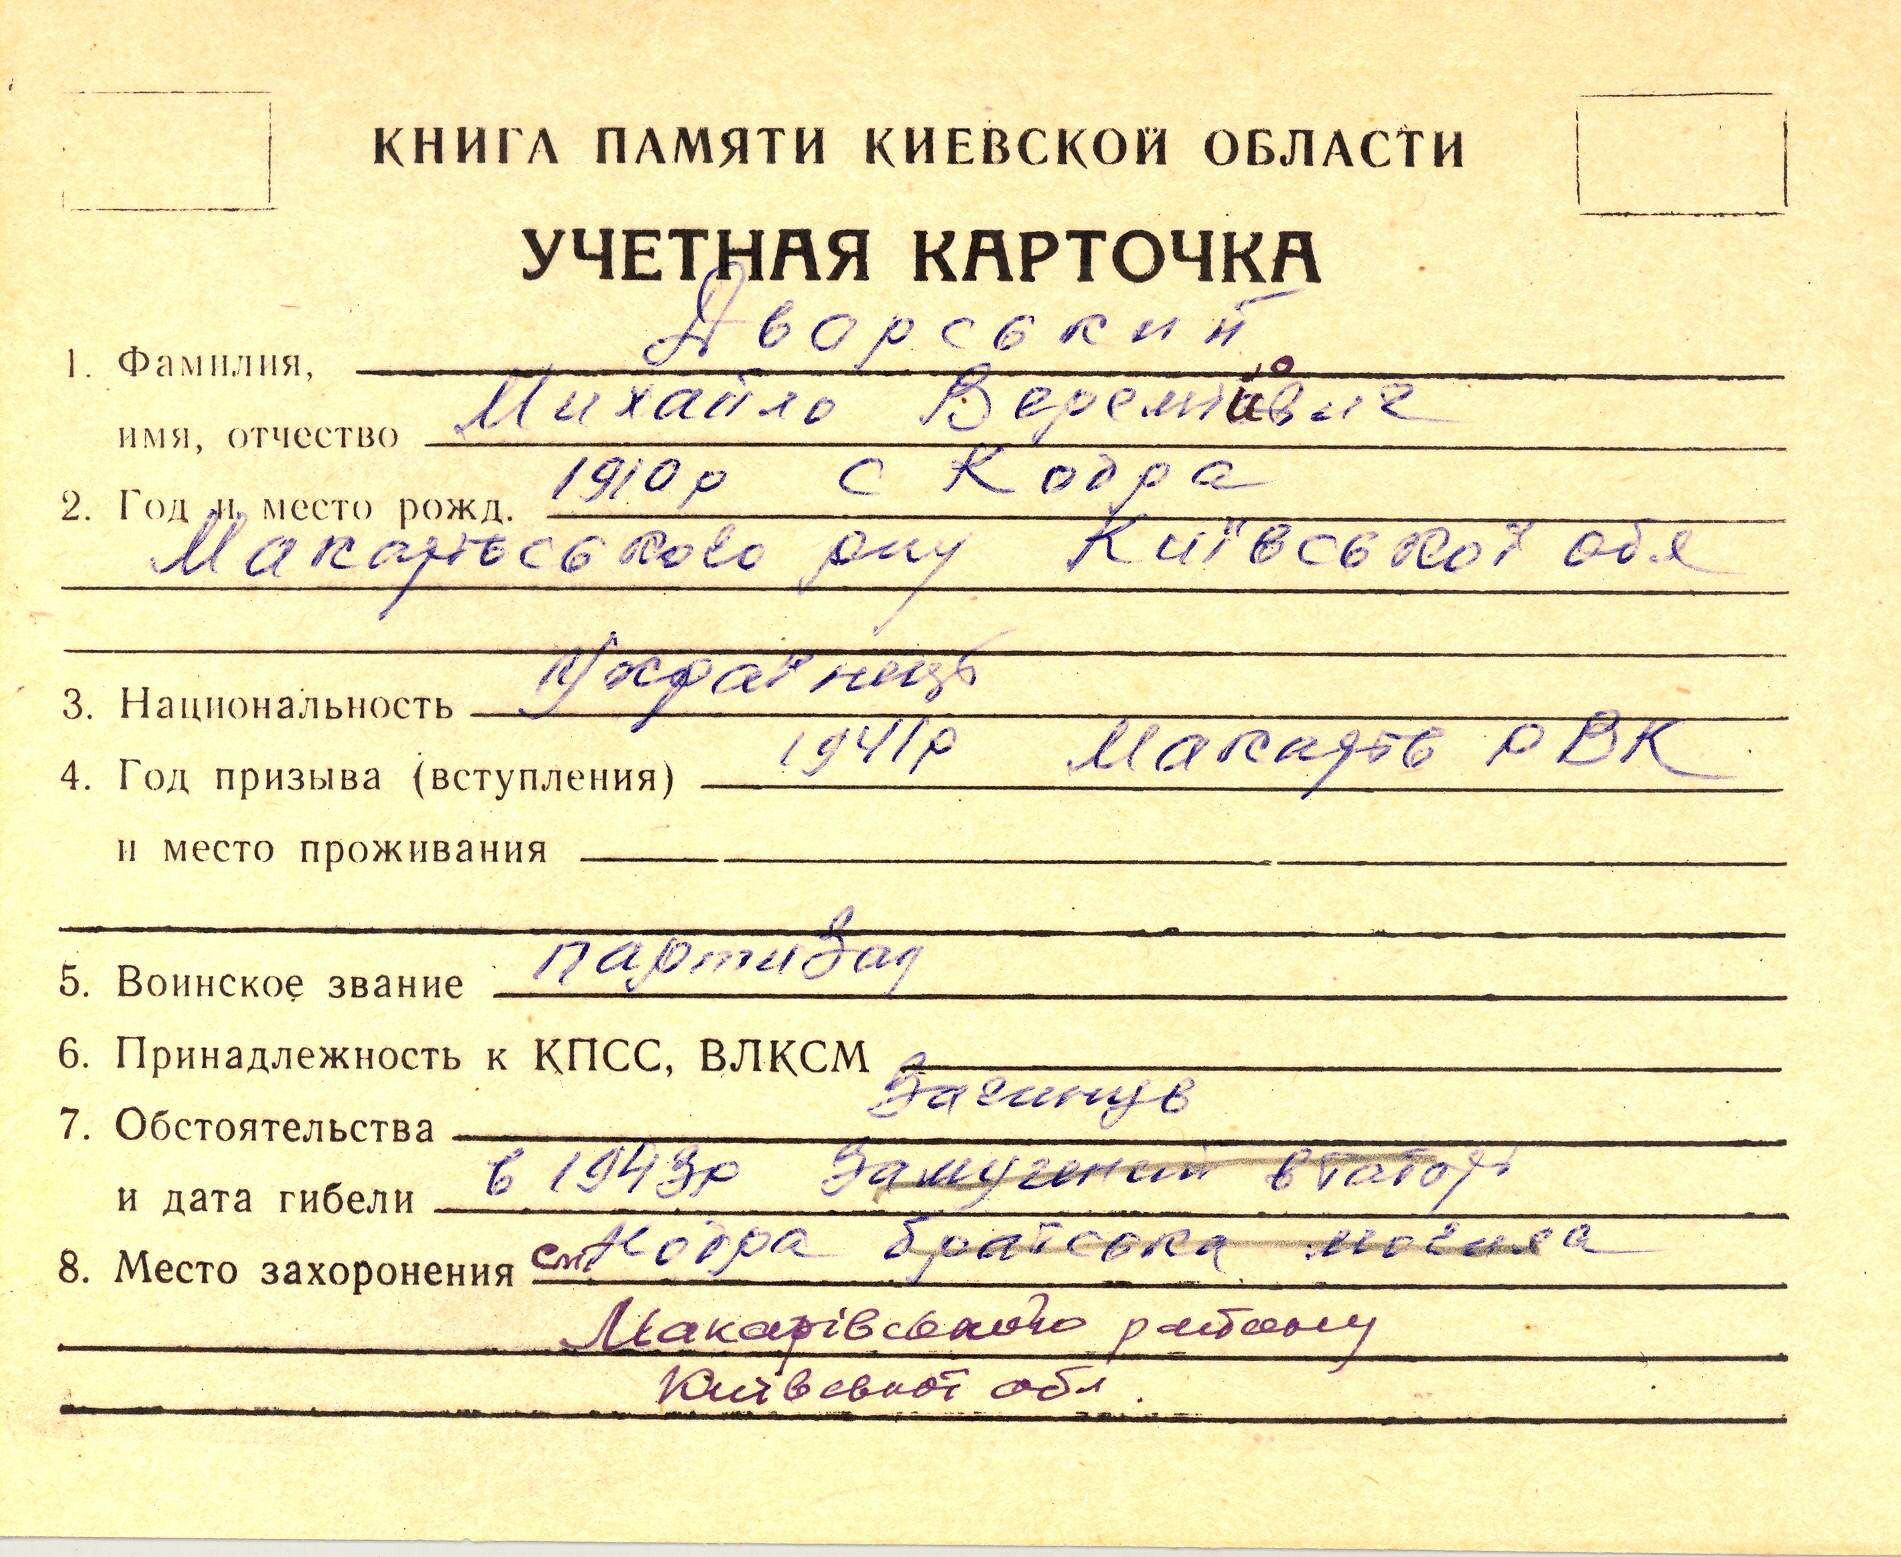 КНИГА ПАМЯТИ КИЕВСКОЙ ОБЛАСТИ
УЧЕТНАЯ КАРТОЧКА
Дворський
1. Фамилия,
Михайло
имя, отчество
1910р с Кодра
2. Год и место рожд.
Макарівського р-ну Київської обл
Українець
3. Национальность
1941р Макарів РВК
4. Год призыва (вступления)
и место проживания
партизан
5. Воинское звание
6. Принадлежность к КПСС, ВЛКСМ
Загинув
7. Обстоятельства
в 1943р Замучений в таборі
и дата гибели
смт Кодра братська могила
8. Место захоронения
Макарівського району
Київської обл.